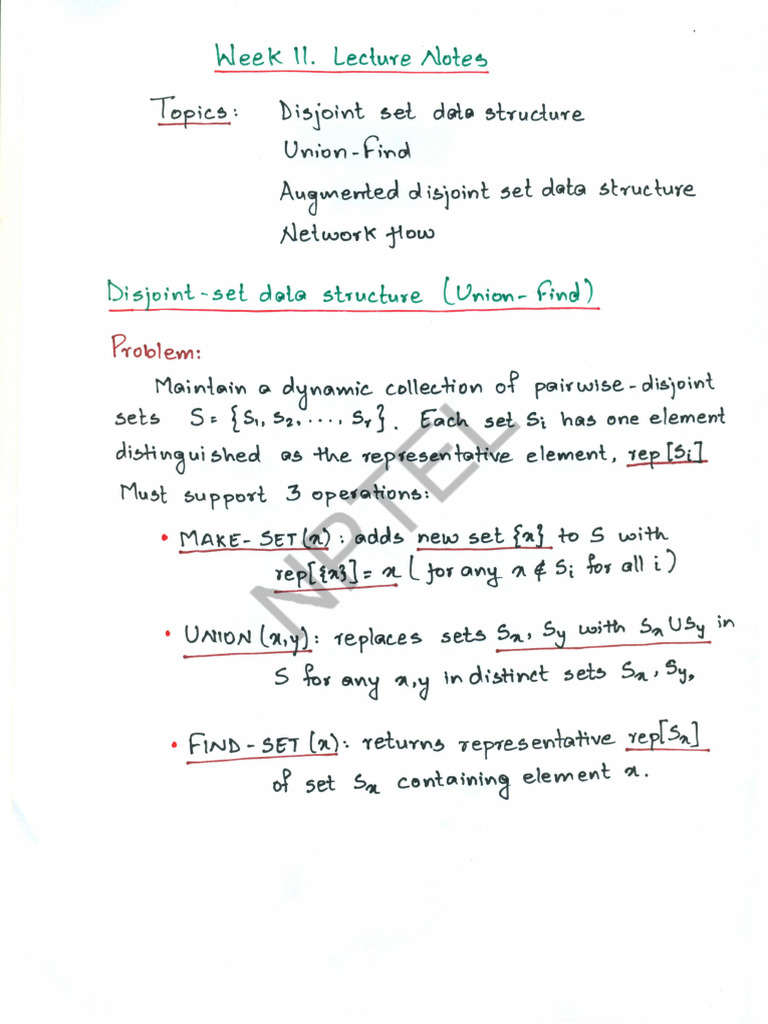 Week 11. Lecture Notes
Topics: Disjoint set data structure
Union-Find
Augmented disjoint set data structure
Network flow
Disjoint-set data structure (Union-Find)
Problem:
Maintain a dynamic collection of pairwise-disjoint
sets S = {S₁, S₂, ..., Sᵣ}. Each set Sᵢ has one element
distinguished as the representative element, rep[Sᵢ]
Must support 3 operations:
• MAKE-SET(x): adds new set {x} to S with
rep[{x}] = x (for any x ∉ Sᵢ for all i)
• UNION(x,y): replaces sets Sₓ, Sy with Sₓ ∪ Sy in
S for any x,y in distinct sets Sₓ, Sy.
• FIND-SET(x): returns representative rep[Sₓ]
of set Sₓ containing element x.
NPTEL